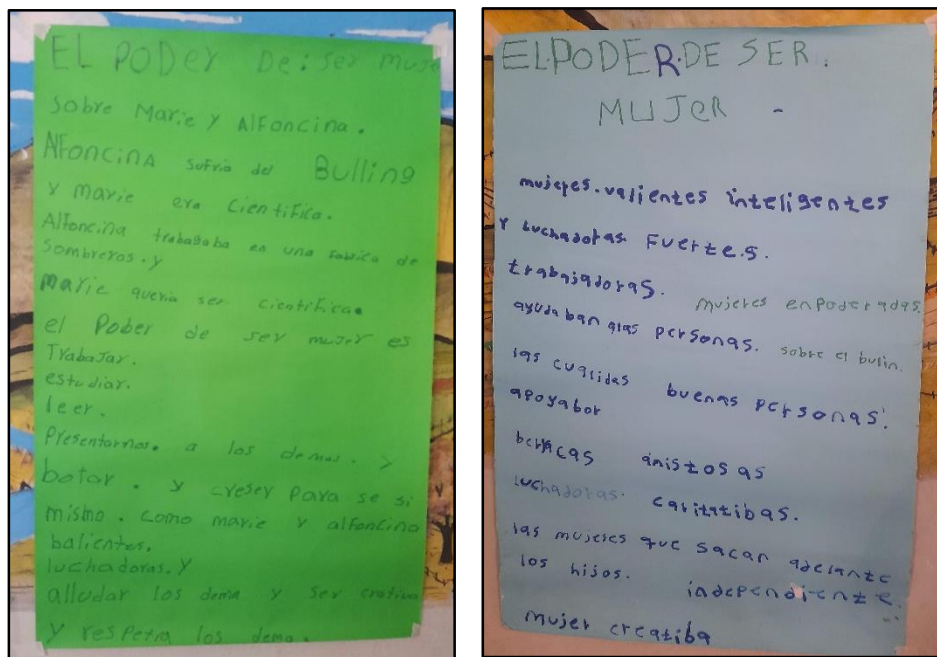 EL PODER De: ser muje
Sobre Marie y Alfoncina.
Alfoncina sufria del Bulling
y marie era cientifica.
Alfoncina trabagaba en una fabrica de
sombreros. y
marie queria ser cientifica.
el Poder de ser mujer es
Trabajar.
estudiar.
leer.
Presentarnos. a los demas. y
botar. y creser para se si
mismo. como marie y alfoncina
balientes.
luchadoras. y
alludar los dema y ser crativa
y respetra los dema.
EL.PODER.DE SER.
MUJER -
mujeres.valientes inteligentes
Y Luchadoras Fuertes.
trabajadoras. mujeres enpoderadas.
ayudaban alas personas. sobre el bulin.
las cualidas buenas personas.
apoyabor
berracas amistosas
luchadoras. caritatibas.
las mujeres que sacan adelante
los hijos. independiente.
mujer creatiba